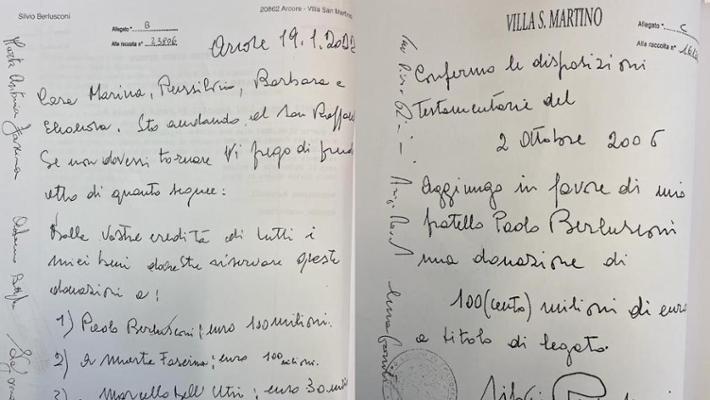 Silvio Berlusconi
20862 Arcore - Villa San Martino
Allegato " B
Alla raccolta n° 23806
Arcore 19.1.2022
Cara Marina, Piersilvio, Barbara e
Eleonora. Sto andando al San Raffaele
Se non dovessi tornare Vi prego di prend
atto di quanto segue:
Dalle vostre eredità di tutti i
miei beni dovreste riservare queste
donazioni a:
1) Paolo Berlusconi; euro 100 milioni.
2) a Marta Fascina; euro 100 milioni.
3 Marcello Dell'Utri; euro 30 mili
VILLA S. MARTINO
Allegato " C
Alla raccolta n°
Confermo le disposizioni
Testamentarie del
2 Ottobre 2006
Aggiungo in favore di mio
fratello Paolo Berlusconi
una donazione di
100 (cento) milioni di euro
a titolo di legato.